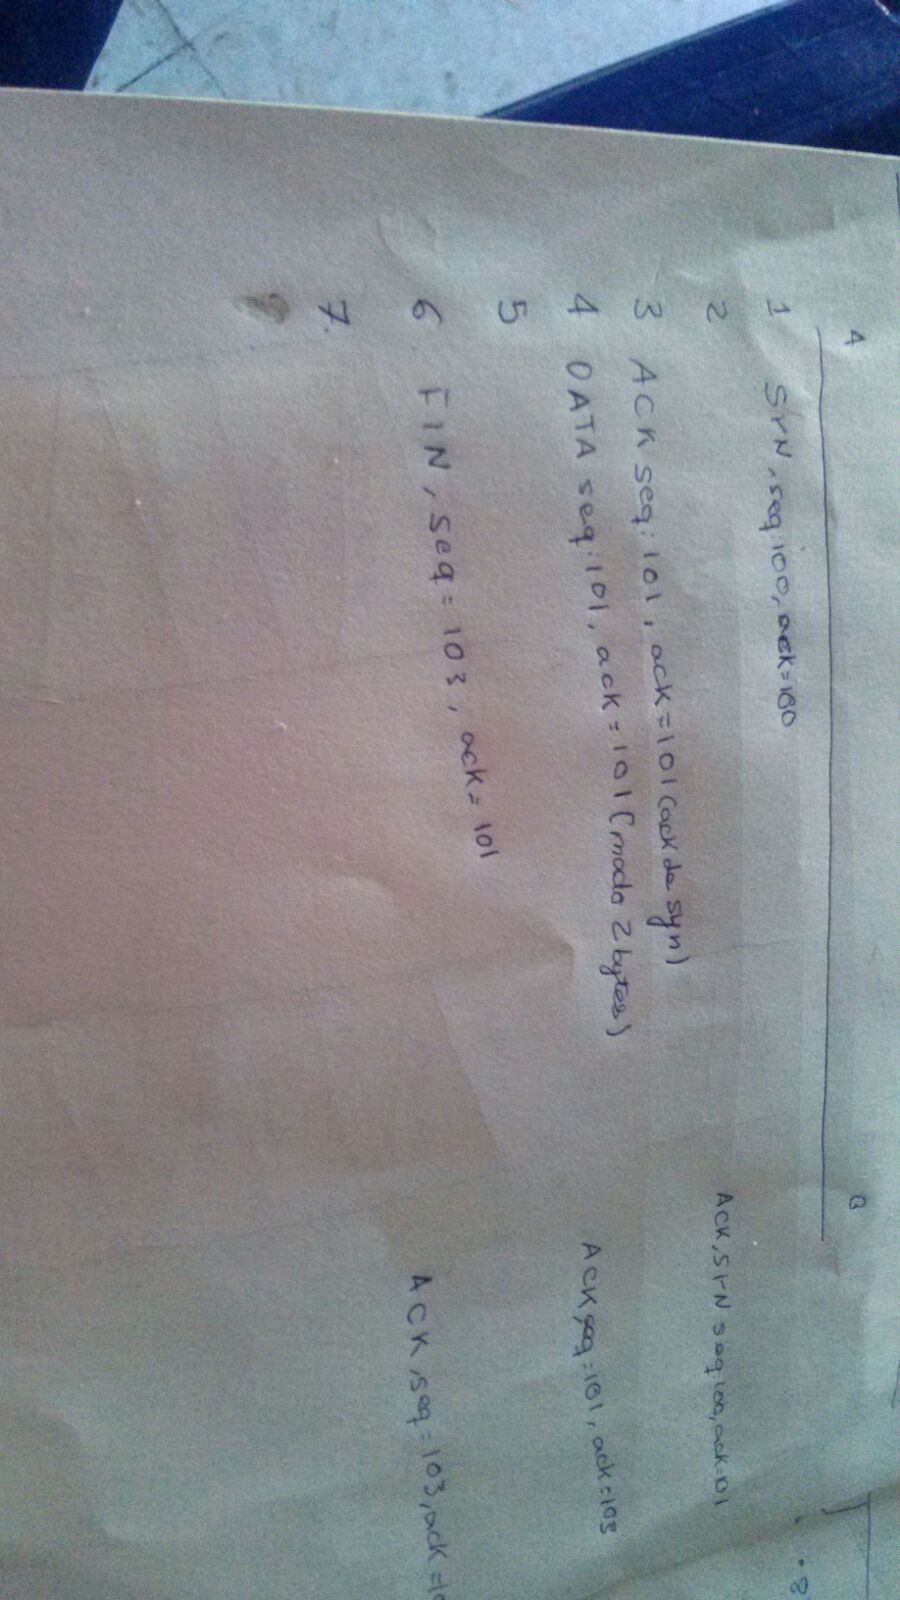 A B
1 SYN, seq:100, ack=100
2 ACK, SYN seq:100, ack=101
3 ACK seq: 101, ack=101 (ack de syn)
4 DATA seq:101, ack=101 (mado 2 bytes) ACK seq=101, ack=103
5
6 FIN, seq=103, ack=101 ACK, seq=103, ack=10
7.